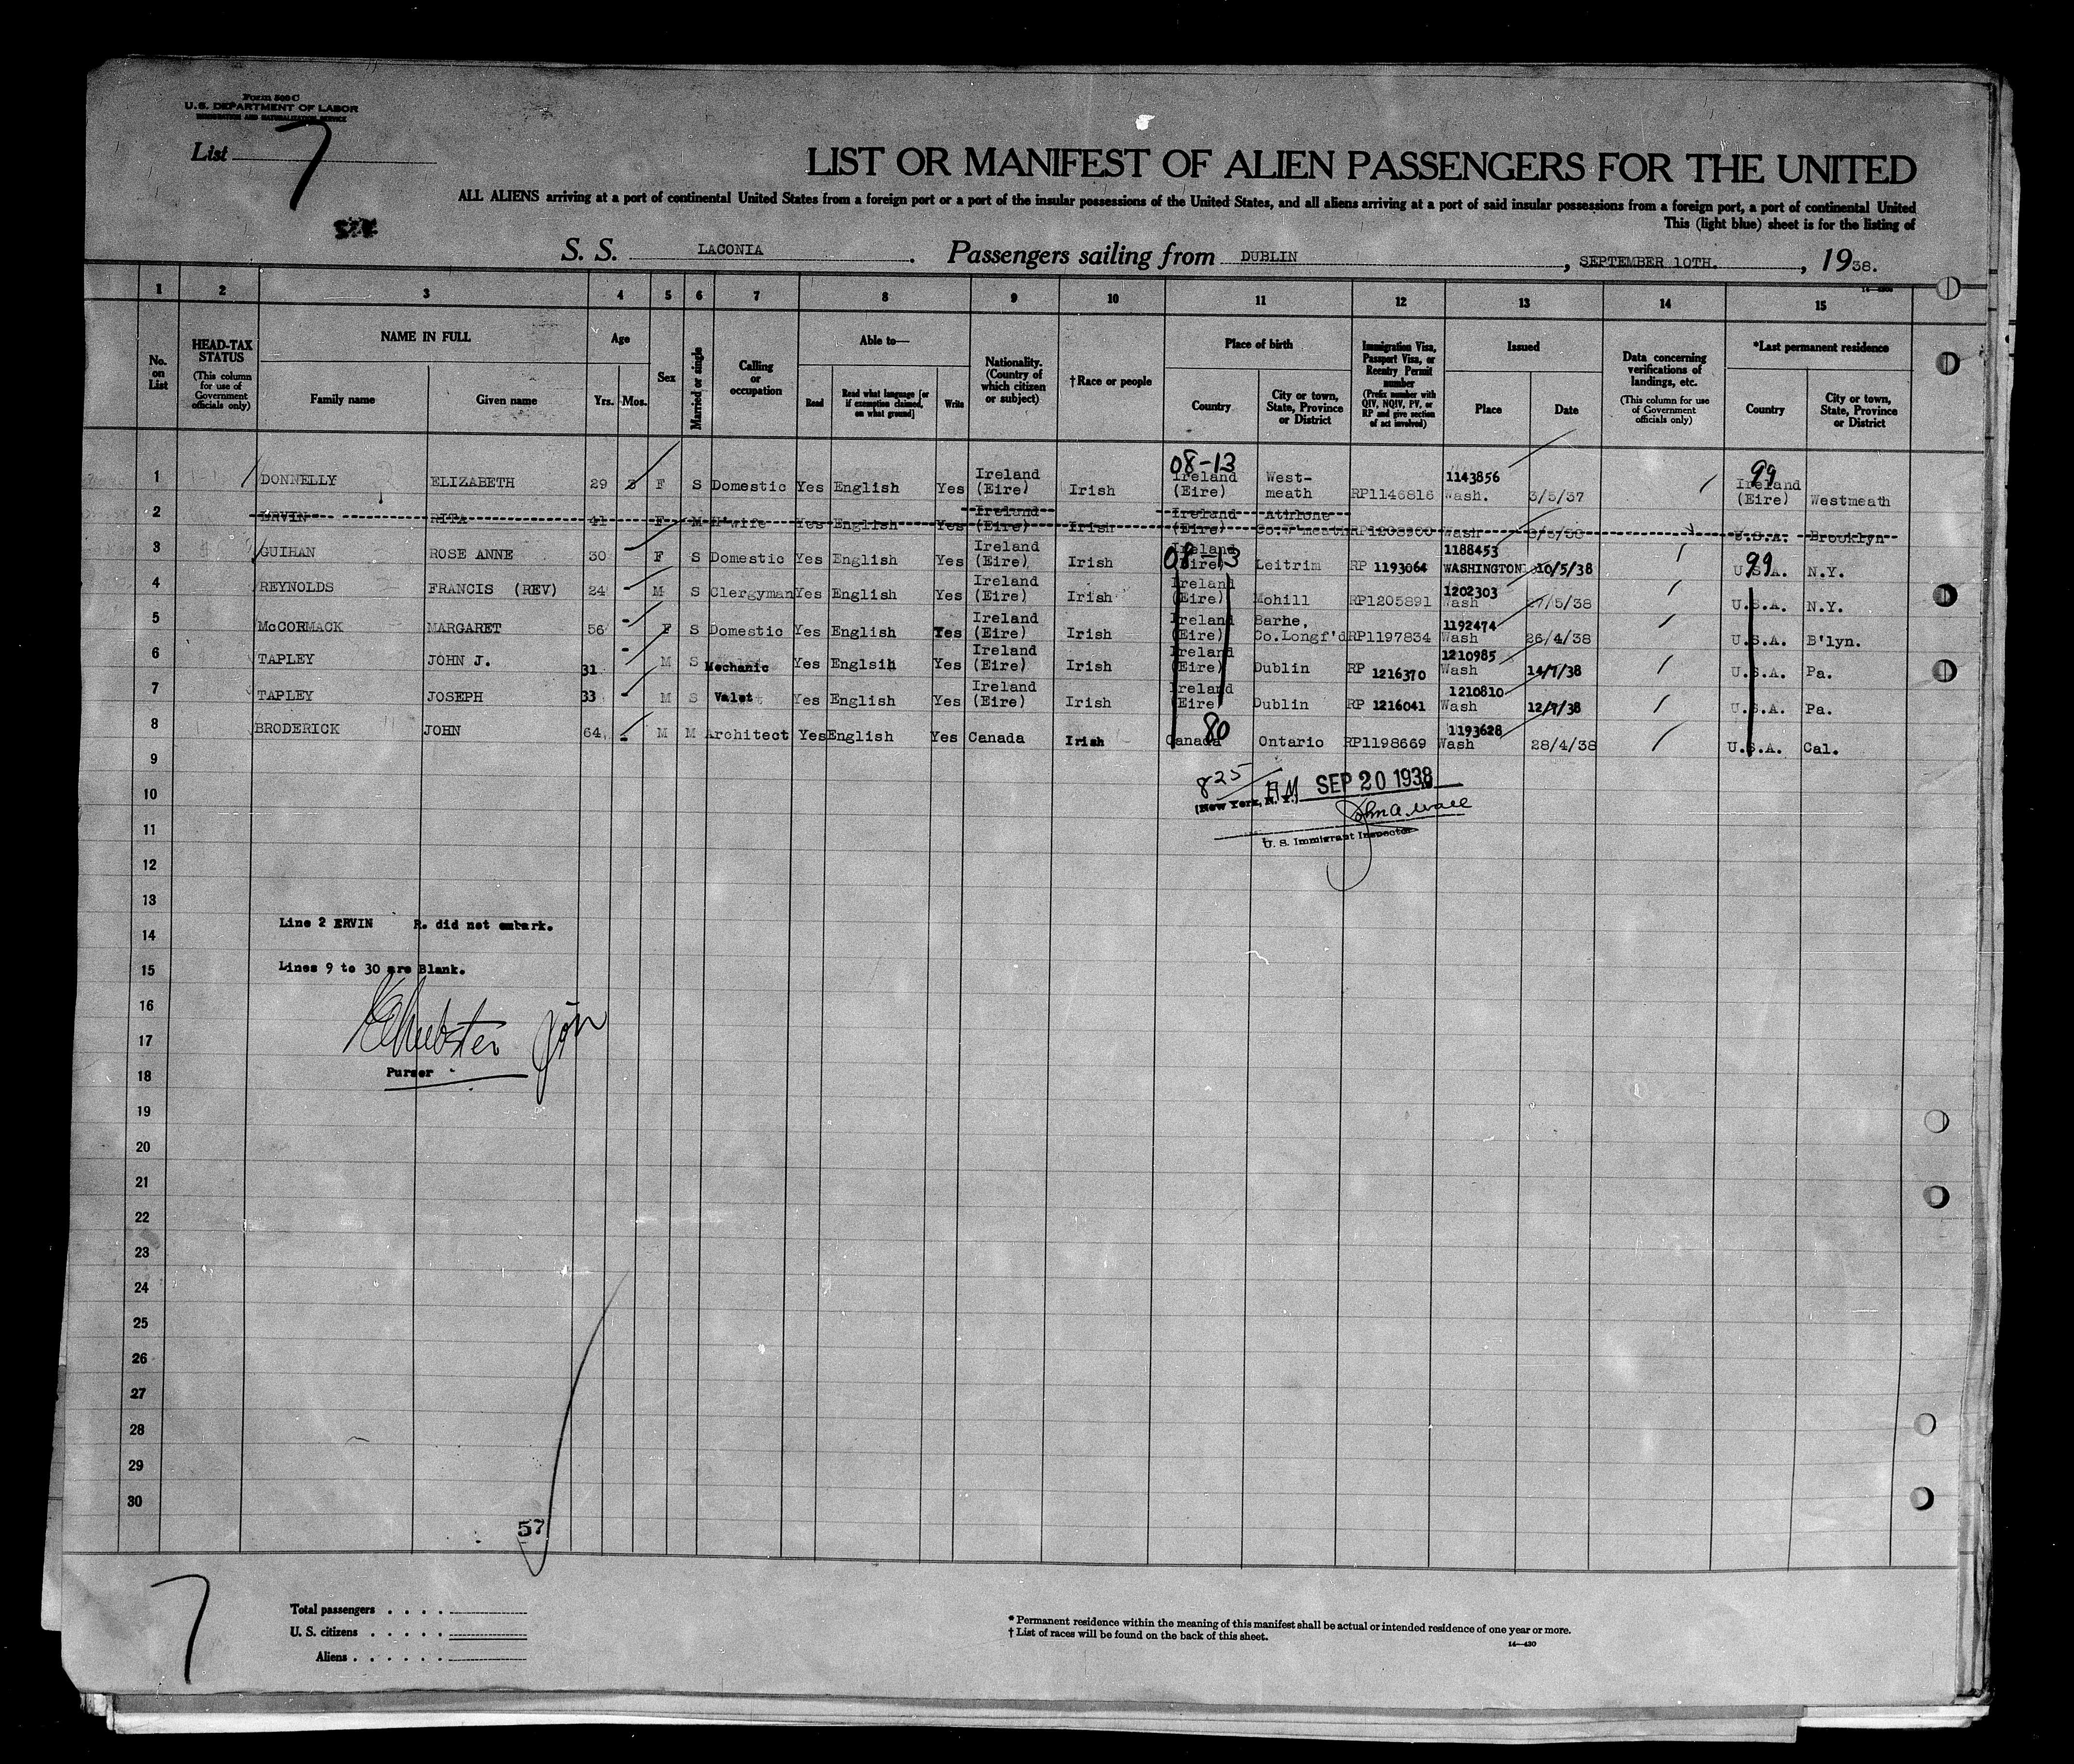 Form 500 C
U.S. DEPARTMENT OF LABOR
IMMIGRATION AND NATURALIZATION SERVICE
List 7
LIST OR MANIFEST OF ALIEN PASSENGERS FOR THE UNITED
ALL ALIENS arriving at a port of continental United States from a foreign port or a port of the insular possessions of the United States, and all aliens arriving at a port of said insular possessions from a foreign port, a port of continental United
This (light blue) sheet is for the listing of
S. S. LACONIA. Passengers sailing from DUBLIN, SEPTEMBER 10TH., 1938.
1 2 3 4 5 6 7 8 9 10 11 12 13 14 15
No. on List
HEAD-TAX STATUS (This column for use of Government officials only)
NAME IN FULL
Family name Given name
Age
Yrs. Mos.
Sex
Married or single
Calling or occupation
Able to—
Read Read what language [or if exemption claimed, on what ground] Write
Nationality. (Country of which citizen or subject)
†Race or people
Place of birth
Country City or town, State, Province or District
Immigration Visa, Passport Visa, or Reentry Permit number (Prefix number with QIV, NQIV, PV, or RP and give section of act involved)
Issued
Place Date
Data concerning verifications of landings, etc. (This column for use of Government officials only)
*Last permanent residence
Country City or town, State, Province or District
1 DONNELLY ELIZABETH 29 3 F S Domestic Yes English Yes Ireland (Eire) Irish 08-13 Ireland (Eire) West-meath RP1146816 1143856 Wash. 3/5/37 99 Ireland (Eire) Westmeath
2 ERVIN RITA 41 F M H'wife Yes English Yes Ireland (Eire) Irish Ireland (Eire) Athlone Co.W'meath Wash U.S.A. Brooklyn
3 GUIHAN ROSE ANNE 30 F S Domestic Yes English Yes Ireland (Eire) Irish 08-13 Ireland (Eire) Leitrim RP 1193064 1188453 WASHINGTON 10/5/38 99 U.S.A. N.Y.
4 REYNOLDS FRANCIS (REV) 24 M S Clergyman Yes English Yes Ireland (Eire) Irish Ireland (Eire) Mohill RP1205891 1202303 Wash 27/5/38 U.S.A. N.Y.
5 McCORMACK MARGARET 56 F S Domestic Yes English Yes Ireland (Eire) Irish Ireland (Eire) Barhe, Co.Longf'd RP1197834 1192474 Wash 26/4/38 U.S.A. B'lyn.
6 TAPLEY JOHN J. 31 M S Mechanic Yes Englsih Yes Ireland (Eire) Irish Ireland (Eire) Dublin RP 1216370 1210985 Wash 14/7/38 U.S.A. Pa.
7 TAPLEY JOSEPH 33 M S Valet Yes English Yes Ireland (Eire) Irish Ireland (Eire) Dublin RP 1216041 1210810 Wash 12/7/38 U.S.A. Pa.
8 BRODERICK JOHN 64 M M Architect Yes English Yes Canada Irish 80 Canada Ontario RP1198669 1193628 Wash 28/4/38 U.S.A. Cal.
9
825 AM SEP 20 1938
10
(New York, N. Y.)
John A. Wall
11
U. S. Immigrant Inspector
12
13
Line 2 ERVIN R. did not embark.
14
15 Lines 9 to 30 are Blank.
16
17
18 Purser
19
20
21
22
23
24
25
26
27
28
29
30
57
7
Total passengers
U. S. citizens
Aliens
* Permanent residence within the meaning of this manifest shall be actual or intended residence of one year or more.
† List of races will be found on the back of this sheet.
14—430